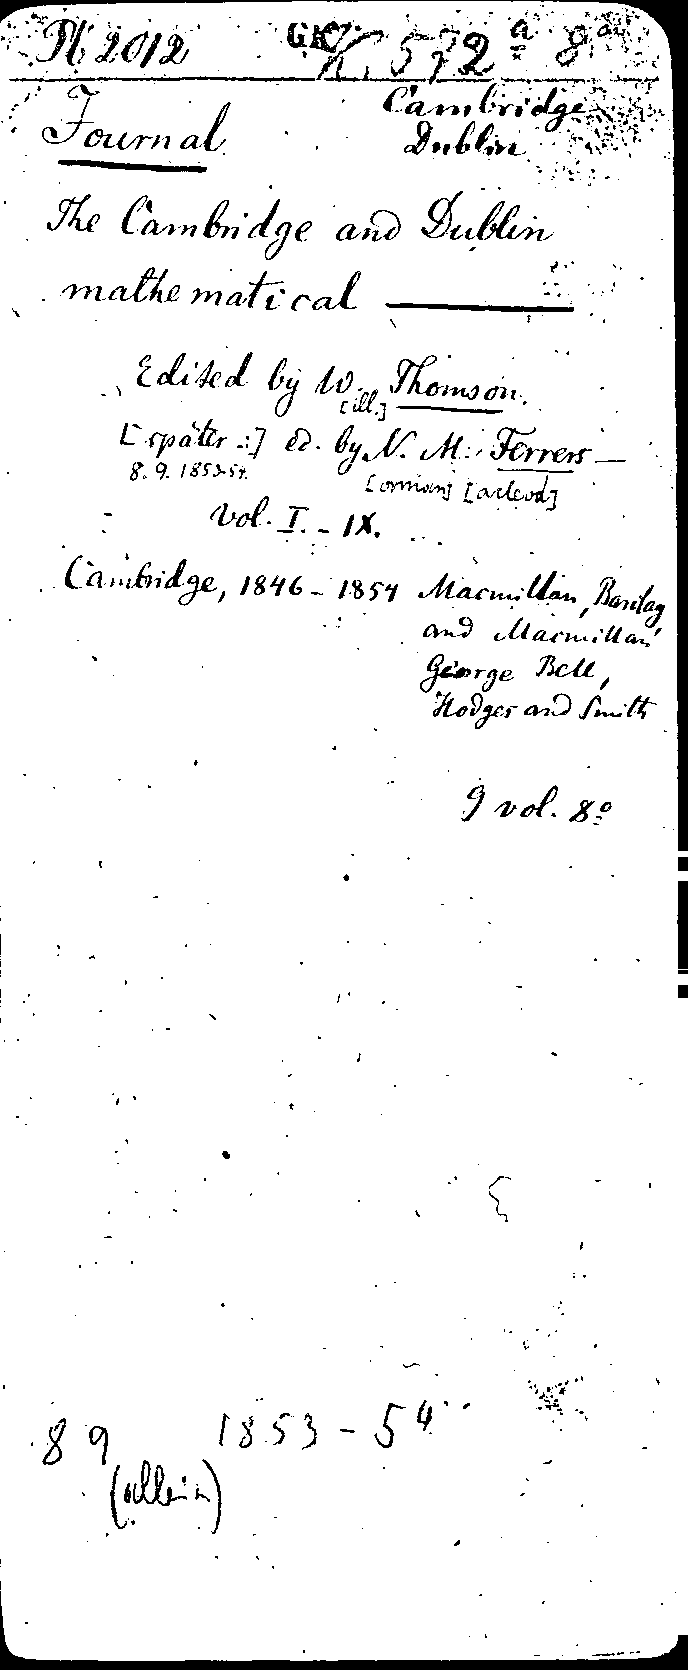 Pl 2012 GKZ. K. 572 a 8°
Journal
Cambridge
Dublin
The Cambridge and Dublin
mathematical ———
Edited by W. Thomson.
[ill.]
[später :] ed. by N. M. Ferrers —
8. 9. 1853-54. [orman] [acleod]
vol. I. - IX.
Cambridge, 1846 - 1854 Macmillan, Barclay,
and Macmillan
George Bell,
Hodges and Smith
9 vol. 8°
8 9 1853 - 54
(allein)